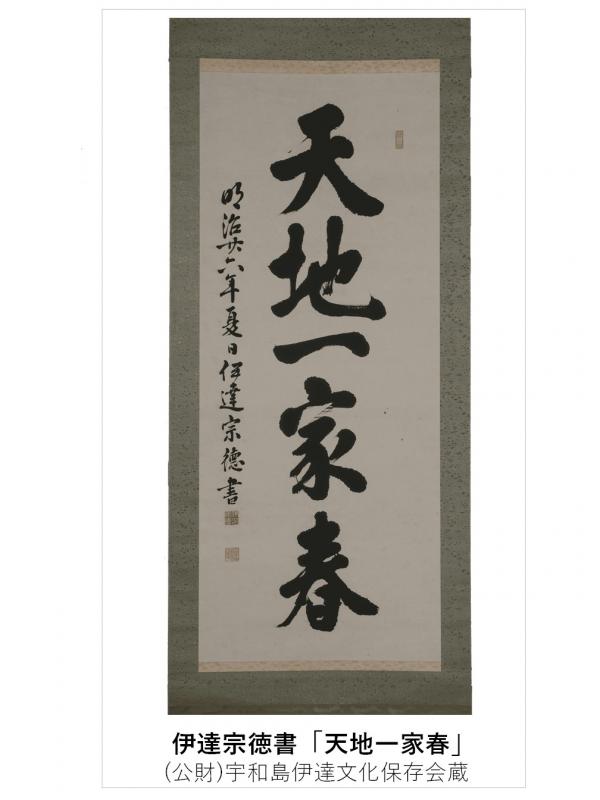 天地一家春
明治廿六年夏日伊達宗德書
伊達宗徳書「天地一家春」
(公財)宇和島伊達文化保存会蔵